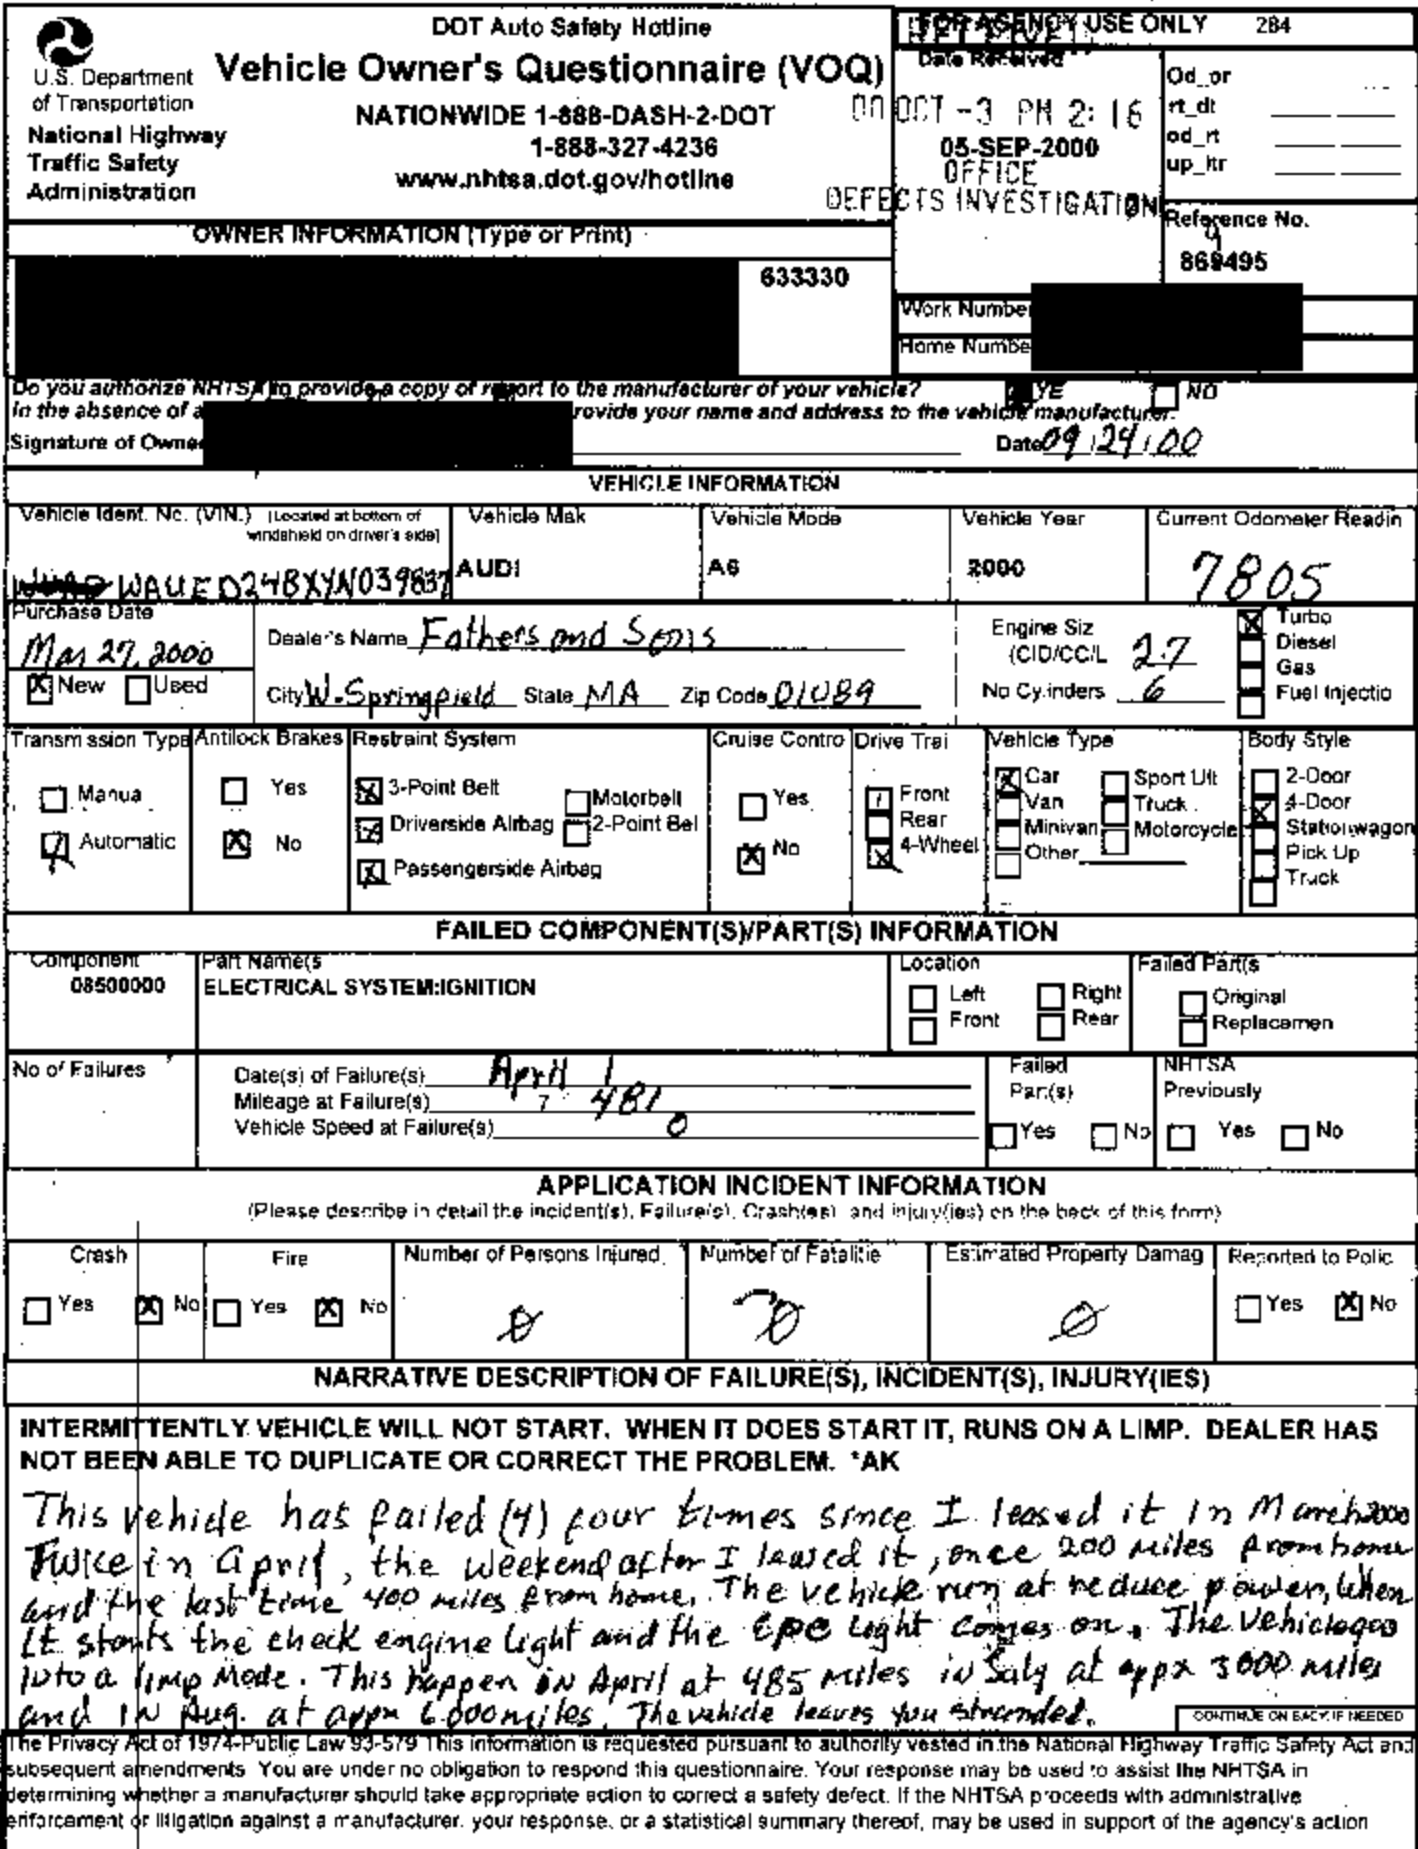 DOT Auto Safety Hotline
Vehicle Owner's Questionnaire (VOQ)
NATIONWIDE 1-888-DASH-2-DOT
1-888-327-4236
www.nhtsa.dot.gov/hotline
U.S. Department
of Transportation
National Highway
Traffic Safety
Administration
FOR AGENCY USE ONLY 284
RECEIVED
Date Received
00 OCT -3 PM 2:16
05-SEP-2000
OFFICE
DEFECTS INVESTIGATION
Od_or
rt_dt
od_rt
up_ltr
Reference No.
869495
OWNER INFORMATION (Type or Print)
633330
Work Number
Home Numbe
Do you authorize NHTSA to provide a copy of report to the manufacturer of your vehicle? YE NO
In the absence of a rovide your name and address to the vehicle manufacturer.
Signature of Owne Date 09/24/00
VEHICLE INFORMATION
Vehicle Ident. No. (VIN.) [Located at bottom of
windshield on driver's side]
WAUED24BXYN039837
Vehicle Mak
AUDI
Vehicle Mode
A6
Vehicle Year
2000
Current Odometer Readin
7805
Purchase Date
Mar 27, 2000
X New Used
Dealer's Name Fathers and Sons
City W. Springfield State MA Zip Code 01089
Engine Siz
(CID/CC/L 2.7
No Cylinders 6
X Turbo
Diesel
Gas
Fuel Injectio
Transmission Type
Manua
Automatic
Antilock Brakes
Yes
X No
Restraint System
X 3-Point Belt
X Driverside Airbag
X Passengerside Airbag
Motorbelt
2-Point Bel
Cruise Contro
Yes
X No
Drive Trai
Front
Rear
X 4-Wheel
Vehicle Type
X Car
Van
Minivan
Other
Sport Ult
Truck
Motorcycle
Body Style
2-Door
X 4-Door
Stationwagon
Pick Up
Truck
FAILED COMPONENT(S)/PART(S) INFORMATION
Component
08500000
Part Name(s
ELECTRICAL SYSTEM:IGNITION
Location
Left Right
Front Rear
Failed Part(s
Original
Replacemen
No of Failures
Date(s) of Failure(s) April 1
Mileage at Failure(s) 481
Vehicle Speed at Failure(s) 0
Failed
Part(s)
Yes No
NHTSA
Previously
Yes No
APPLICATION INCIDENT INFORMATION
(Please describe in detail the incident(s), Failure(s), Crash(es), and injury(ies) on the back of this form)
Crash
Yes X No
Fire
Yes X No
Number of Persons Injured
0
Number of Fatalitie
0
Estimated Property Damag
0
Reported to Polic
Yes X No
NARRATIVE DESCRIPTION OF FAILURE(S), INCIDENT(S), INJURY(IES)
INTERMITTENTLY VEHICLE WILL NOT START. WHEN IT DOES START IT, RUNS ON A LIMP. DEALER HAS
NOT BEEN ABLE TO DUPLICATE OR CORRECT THE PROBLEM. *AK
This vehicle has failed (4) four times since I leased it in March 2000
Twice in April, the weekend after I leased it, once 200 miles from home
and the last time 400 miles from home. The vehicle run at reduce power, when
it starts the check engine light and the EPC light comes on. The vehicle goes
into a limp mode. This happen in April at 485 miles in July at appx 3000 miles
and in Aug. at appx 6000 miles. The vehicle leaves you stranded.
CONTINUE ON BACK IF NEEDED
The Privacy Act of 1974-Public Law 93-579 This information is requested pursuant to authority vested in the National Highway Traffic Safety Act and
subsequent amendments You are under no obligation to respond this questionnaire. Your response may be used to assist the NHTSA in
determining whether a manufacturer should take appropriate action to correct a safety defect. If the NHTSA proceeds with administrative
enforcement or litigation against a manufacturer, your response, or a statistical summary thereof, may be used in support of the agency's action